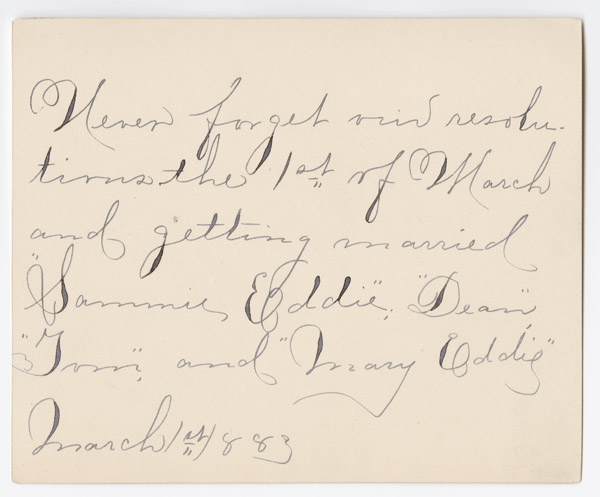 Never forget our resolu-
tions the 1st of March
and getting married
"Sammie, Eddie", "Dean",
"Tom", and "Mary Eddie"
March 1st 1883